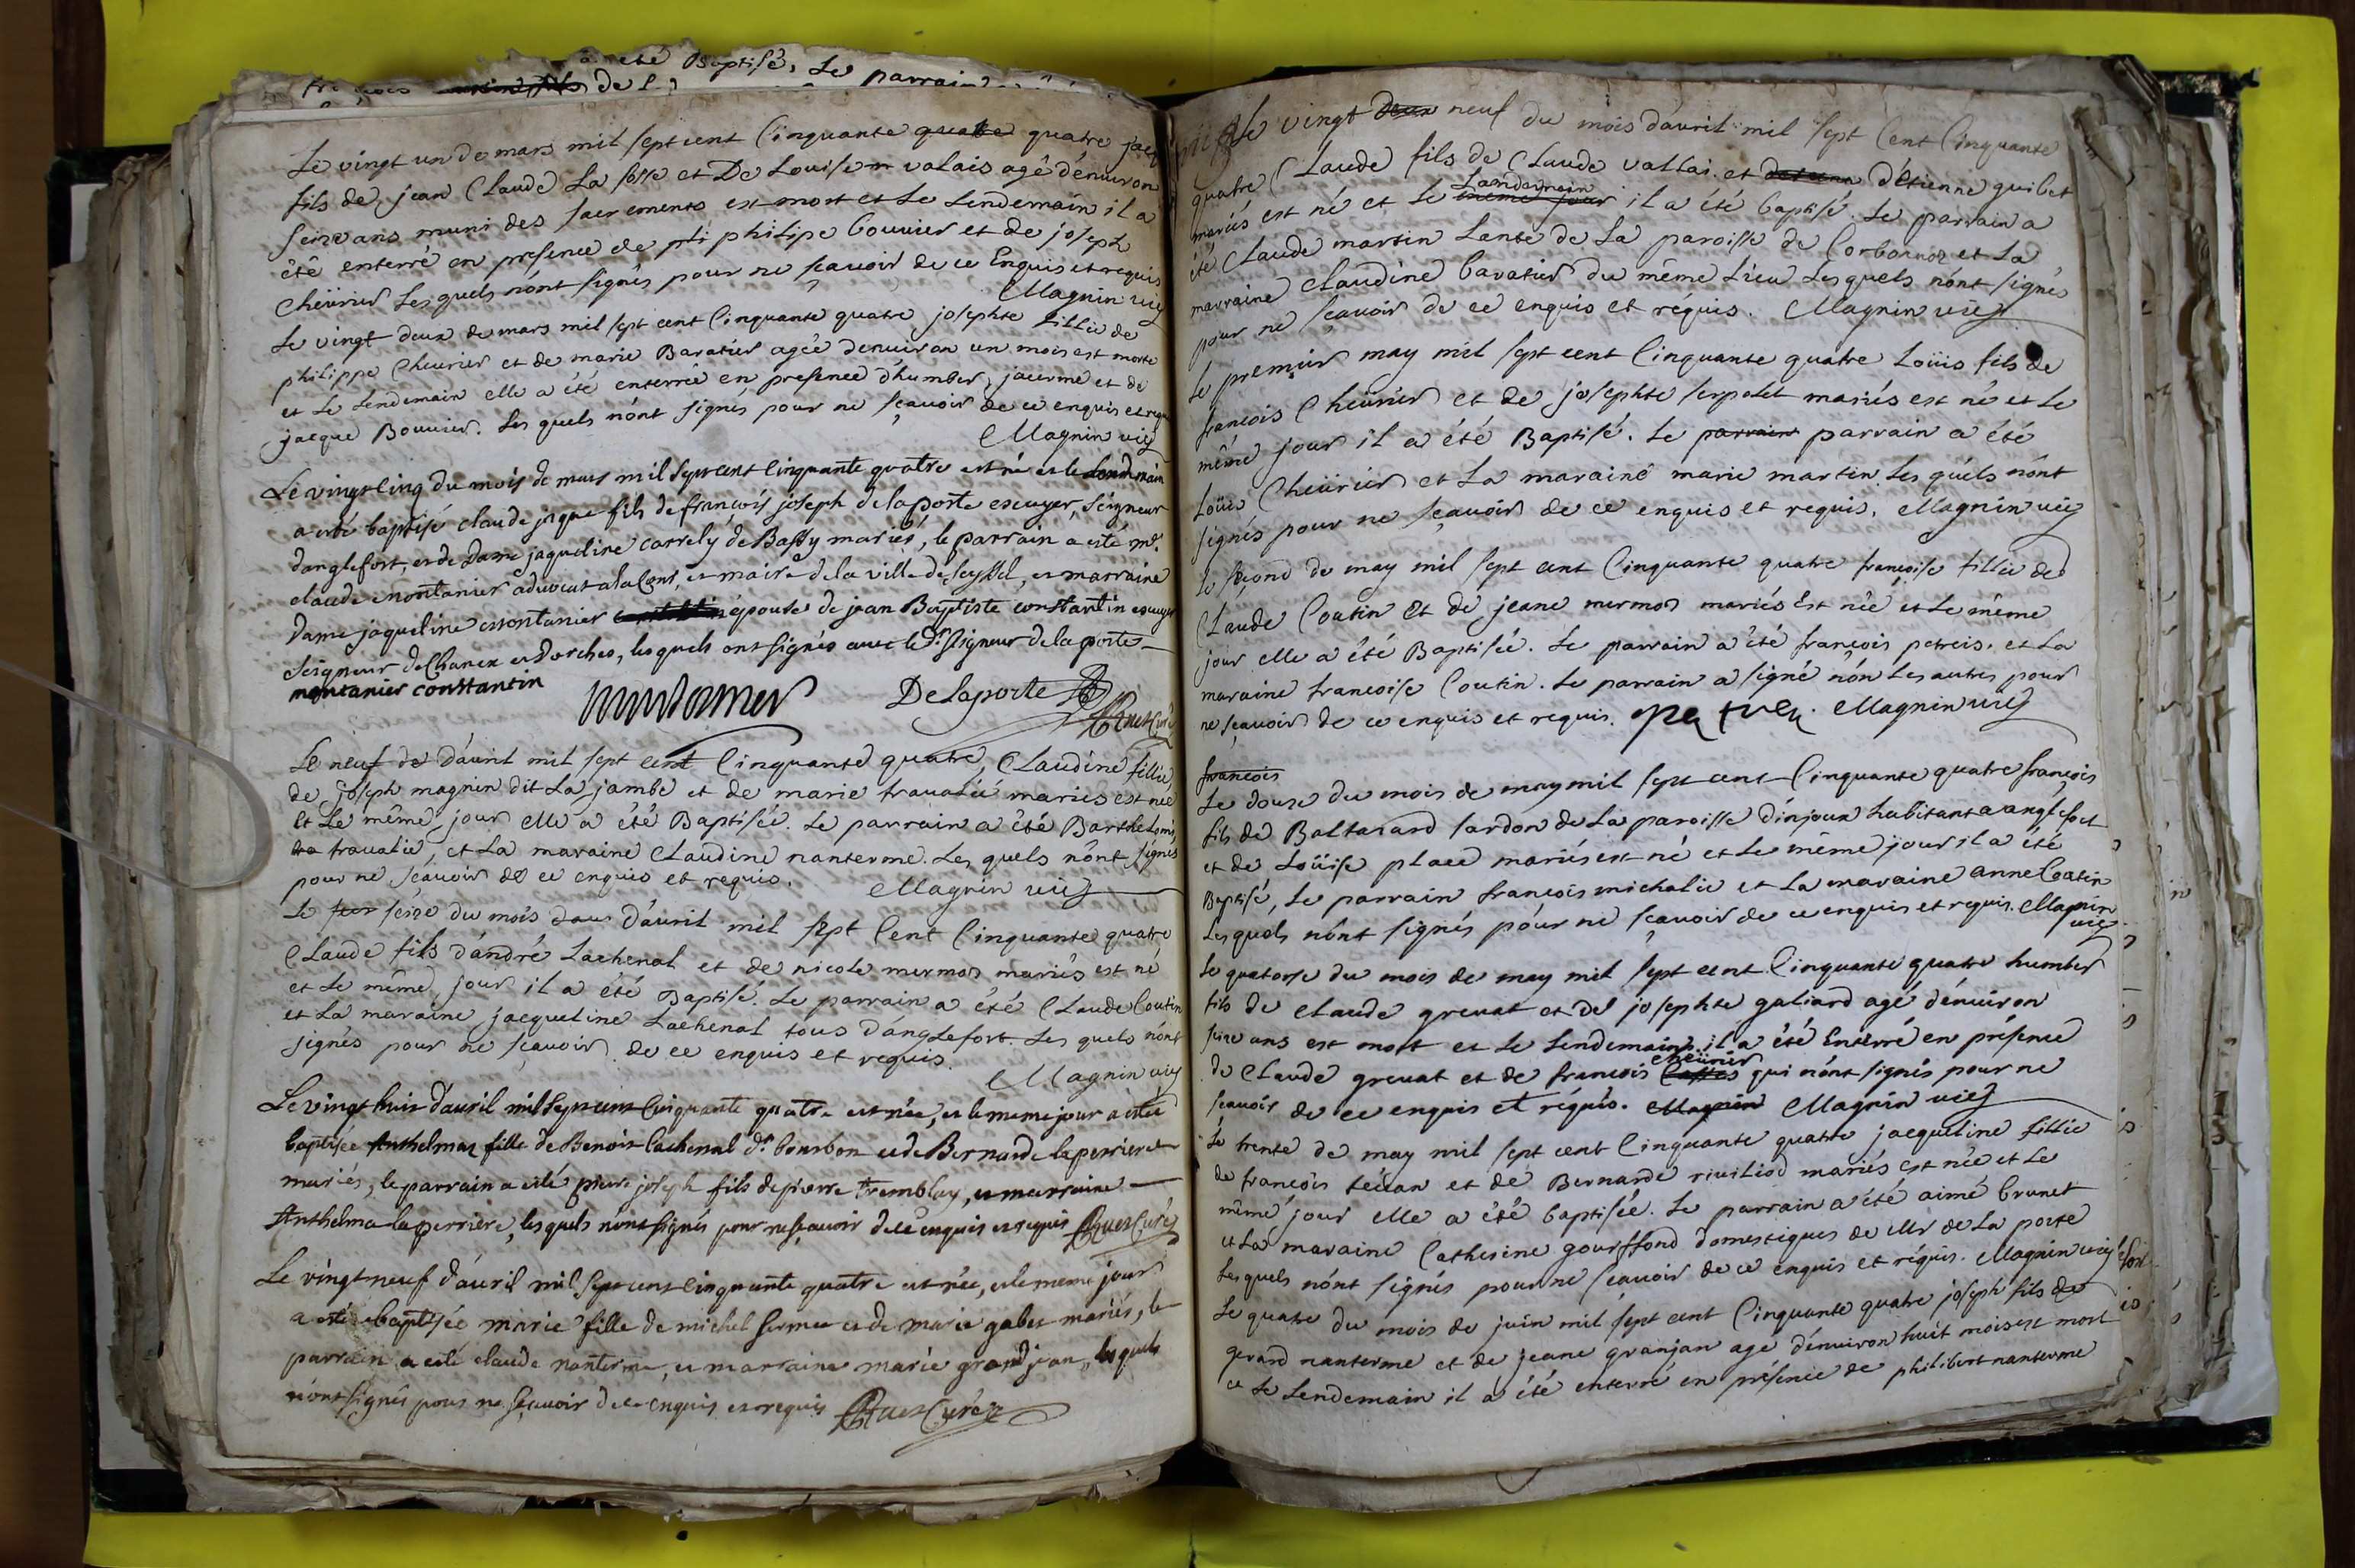 a été Baptisé, Le parrain
de
Le vingt un de mars mil sept cent Cinquante quatre quatre
fils de jean Claude La fosse et De Louise valais agé d'énuiron
seize ans muni des sacrements est mort et Le Lendemain il a
êtê enterré en presence de philipe bouuier et de joseph
Cheürier Lesquels n'ónt signés pour ne sçauoir de ce Enquis et requis
Magnin vic
Le vingt deux de mars mil sept cent Cinquante quatre josephte fillie de
philippe Cheurier et de marie Baratier agée denuiron un mois est morte
et Le Lendemain elle a été enterrée en presence dhumber jacerme et de
jacque Bouuier. Les quels n'ónt signés pour ne sçauoir de ce enquis et requ
Magnin vic
Le vingt cinq du mois de mars mil sept cent cinquante quatre est né et le Lendemain
a esté baptisé claude jaque fils de françois joseph delaporte escuyer, seigneur
danglefort, et de Dame jaqueline carrely de Bassy mariés, le parrain a esté mr.
claude montanier aduocat ala Cour, et maire dela ville de seyssel, et marraine
Dame jaqueline montanier épouse de jean Baptiste constantin escuyer
Seigneur de Chanex et Dorches, lesquels ont signés auec le dt. seigneur delaporte
montanier constantin
montanier Delaporte
Curé
Le neuf de d'áuril mil sept cent Cinquante quatre, Claudine fillie
de joseph magnin dit La jambe et de marie traualie mariés est née
et Le même jour elle a été Baptisée. Le parrain a été Barthelomi
traualie, et La maraine Claudine nanterme. Les quels n'ónt signés
pour ne sçauoir de ce enquis et requis. Magnin vic
Le seize du mois d'áuril mil sept Cent Cinquante quatre
Claude fils d'ándré Lachenal et de nicole mermod mariés est né
et Le même jour il a été Baptisé. Le parrain a été Claude Coutin
et La maraine jacqueline Lachenal tous d'ánglefort. Les quels n'ónt
signés pour ne sçauoir de ce enquis et requis.
Magnin vic
Le vingt huit d'auril mil sept cent cinquante quatre est née, et le meme jour a esté
baptisée Anthelmaz fille de Benoit Lachenal dt. bourbon et de Bernarde laperriere
mariés, le parrain a esté pierre joseph fils de pierre tremblay, et marraine
Anthelma la perriere, lesquels n'ont signés pour ne sçauoir de ce enquis et requis Curé
Le vingt neuf d'auril mil sept cent cinquante quatre est née, et le meme jour
a esté baptisée marie fille de michel et de marie gabet mariés, le
parrain a esté claude nanterme, et marraine marie grandjean, lesquels
n'ont signés pour ne sçauoir de ce enquis et requis Curé
Le vingt deux neuf du mois d'áuril mil sept Cent Cinquante
quatre Claude fils de Claude vallai et d'étienne guibet
Landemain
mariés est né et Le même jour il a été baptisé. Le parrain a
été Claude martin Lante de La paroisse de Corbonoz et La
marraine Claudine baratier du même Lieu Les quels n'ónt signés
pour ne sçauoir de ce enquis et réquis. Magnin vic
Le premier may mil sept cent Cinquante quatre Loüis fils de
francois Cheürier et de josephte serpolet mariés est né et Le
même jour il a été Baptisé. Le parrain parrain a été
Loüis Cheürier et La maraine marie martin. Les quels n'ónt
signés pour ne sçauoir de ce enquis et requis. Magnin vic
Le seçond de may mil sept cent Cinquante quatre françoise fillie de
Claude Coutin et de jeane mermod mariés Est née et Le même
jour elle a été Baptisée. Le parrain a été françois petreis. et La
maraine francoise Coutin. Le parrain a signé nón Les autres pour
ne sçauoir de ce enquis et requis. Magnin vic
francois
Le douze du mois de may mil sept cent Cinquante quatre françois
fils de Baltazard sardon de La paroisse d'injoux habitant a anglefort
et de Loüise place mariés est né et Le même jour il a été
Baptisé, Le parrain françois michalie et La maraine anne Coatin
Les quels n'ónt signés póur ne sçauoir de ce enquis et requis. Magnin
vic
Le quatorse du mois de may mil sept cent Cinquante quatre humber
fils de claude greuat et de josephte galiard agé d'énuiron
seize ans est mort et Le Lendemain il a été Enterré en présence
cheürier
de Claude greuat et de francois qui n'ónt signés pour ne
scauoir de ce enquis et réquis. Magnin Magnin vic
Le trente de may mil sept cent Cinquante quatre jacqueline fillie
de francois técian et dé Bernarde riuiliod mariés est née et Le
même jour elle a été baptisée. Le parrain a été aimé brunet
et La maraine Catherine gourffond domestiques de Mr de La porte
Lesquels n'ónt signés pour ne scauoir de ce enquis et réquis. Magnin vic
Le quatre du mois de juin mil sept cent Cinquante quatre joseph fils de
gerard nanterme et de jeane granjan age d'énuiron huit mois est mort
et Le Lendemain il a été enterré en présence de philibert nanterme